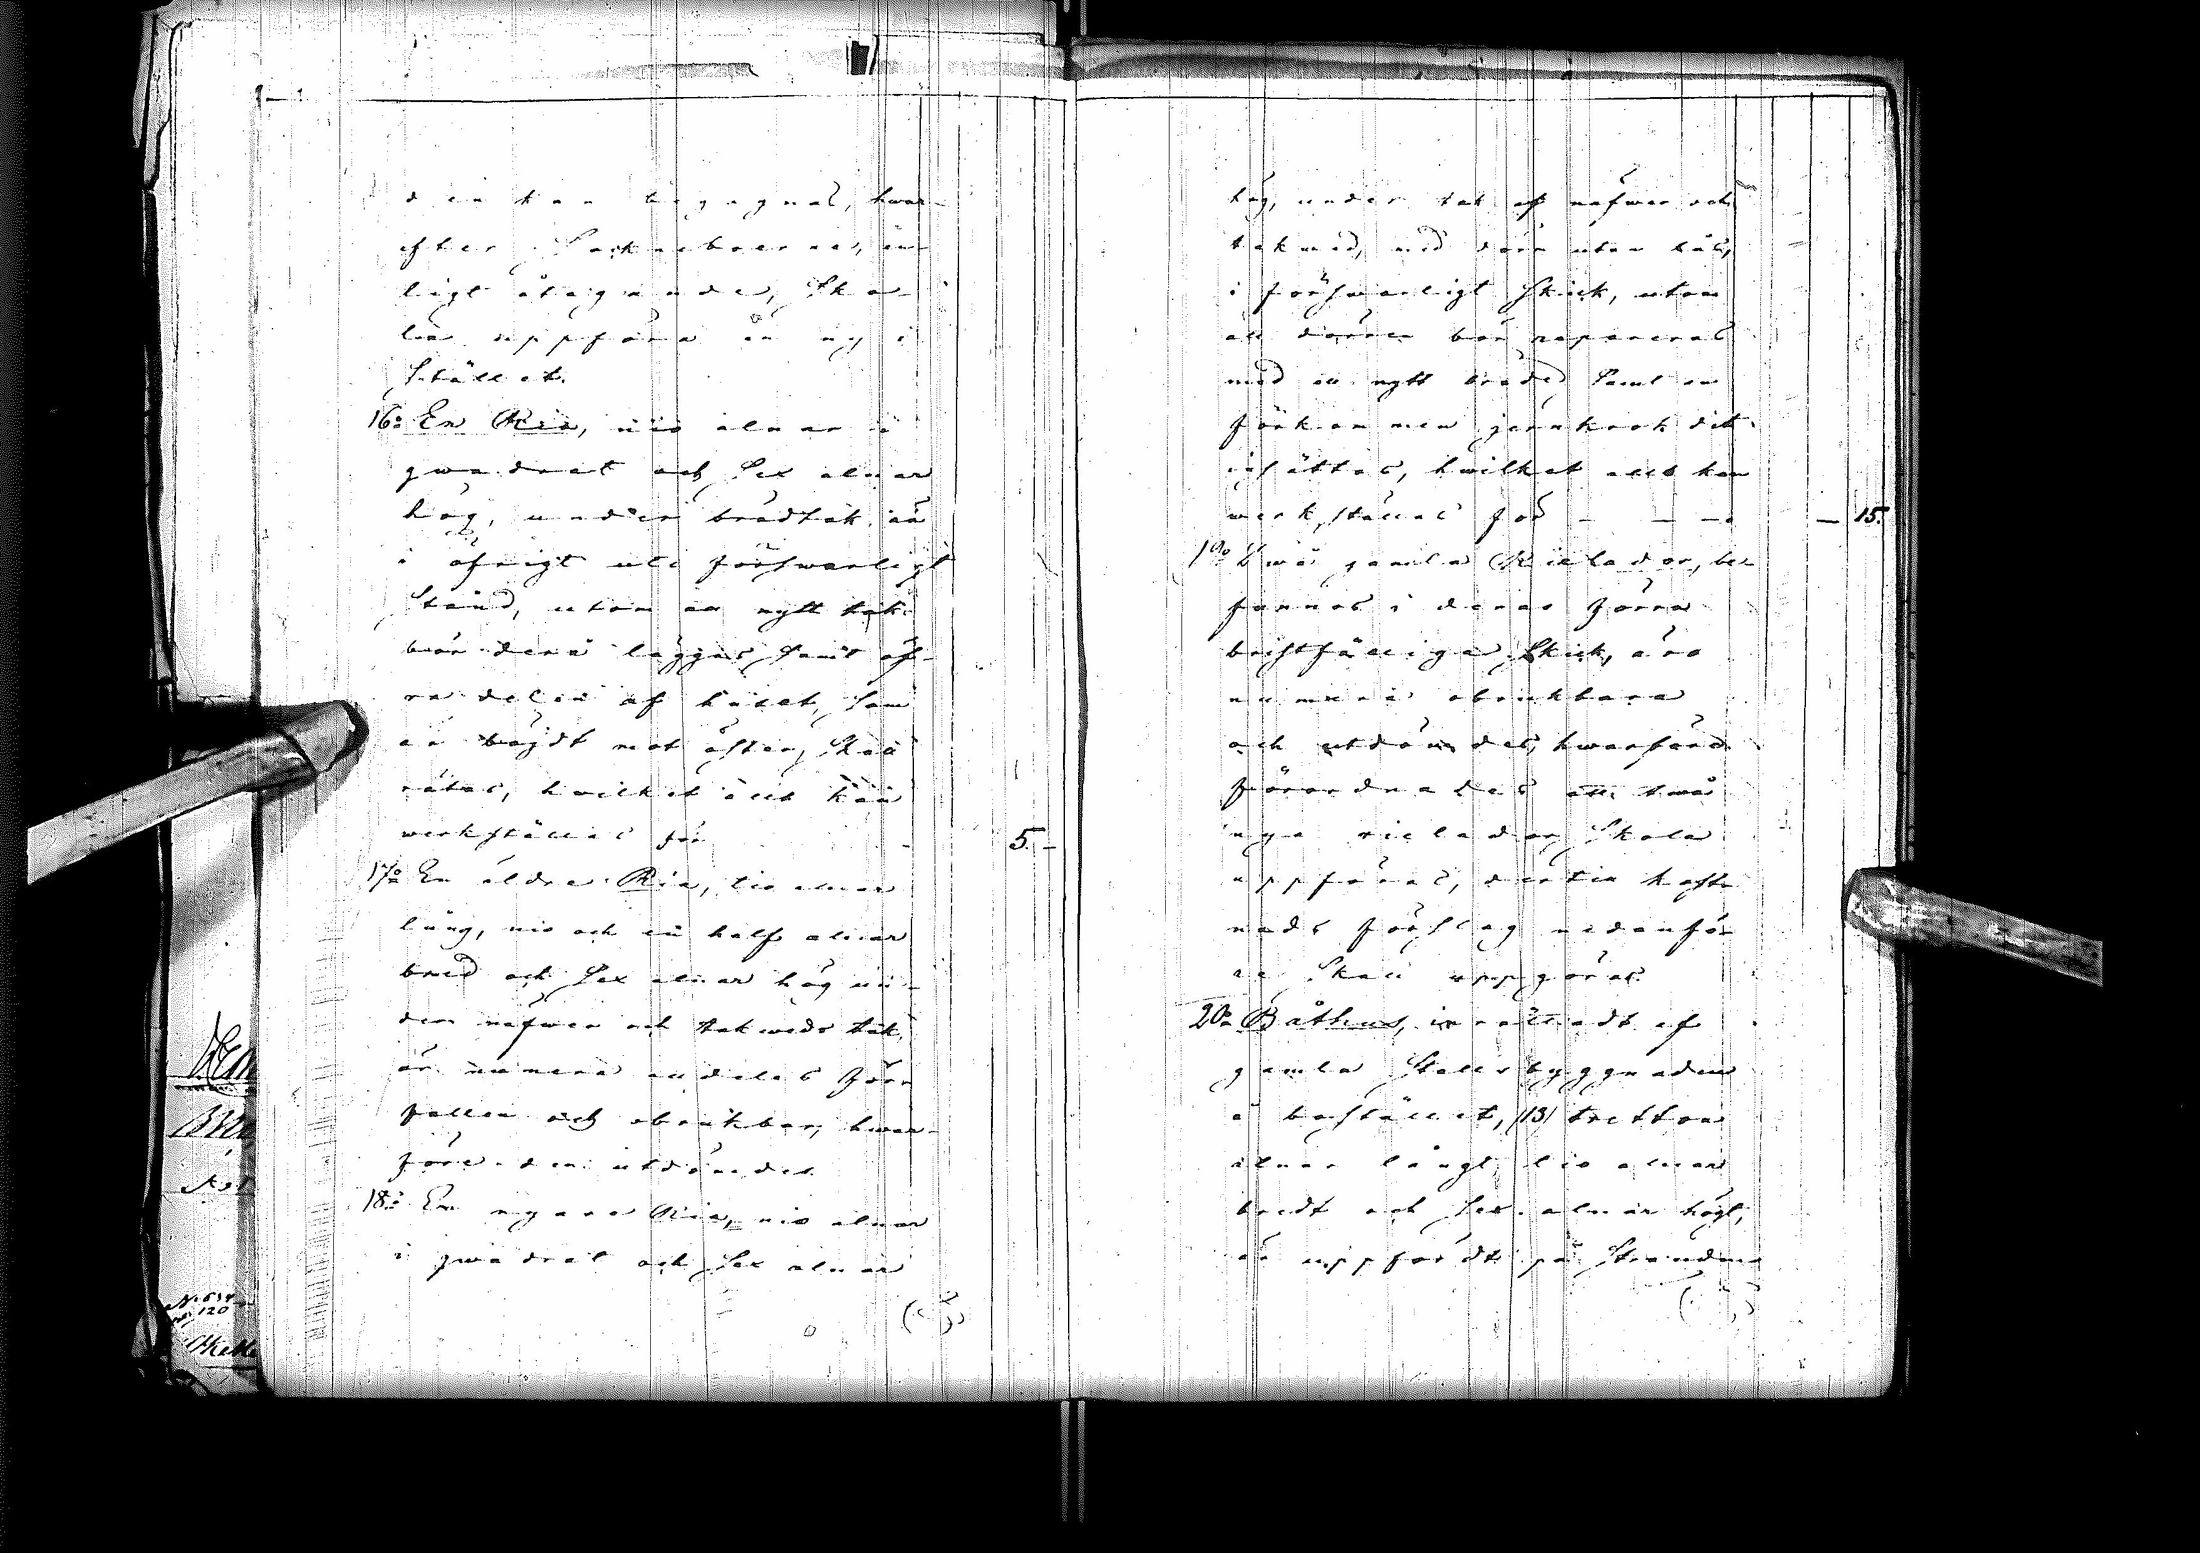 den kan begagnas, hwar-
efter Sockneboerne, en-
ligt åtagande, Ska-
la uppföra en ny i
Stället.
16:o En Ria, nio alnar i
qwadrat och Sex alnar
hög, under brädtak, är
i öfrigt uti försvarligt
Stånd, utom en nytt tak
bör derå läggas samt öf-
ra delen af huset, Som
är böjdt mot öster, Skall
rätas, hvilket allt kan
werkställas för 5. -
17:o En äldre Ria, tio alnar
lång, nio och en half alnar
bred och Sex alnar hög un-
der näfwer och takweds tak,
är numera alldeles förr
fallen och obrukbar, hwar-
före den utdömdes
18:o En nyare Ria, nio alnar
i qwadrat och Sex alnar
hög, under tak af näfwer och
takwed, med dörr utan lås,
i försvarligt Skick, utom
att dörren bör repareras
med en nytt bräde Samt en
förkommen jernkrok dit
insättas, hwilket allt kan
werkställas för - - - - 15.
19:o Twå gamla Rielador, be-
funnos i deras förra
bristfälliga Skick, äro
numera obrukbara
och utdömdes, hwarföre
förordnades att twå
nya rielador Skola
uppföras, dertill kost-
nads förslag nedanfö-
re Skall uppgöras.
20:o Båthus, inrättadt af
gamla Stallsbyggnaden
å bostället, /13/ tretton
alnar långt, tio alnar
bredt och Sex alnar högt,
är uppfördt på Stranden